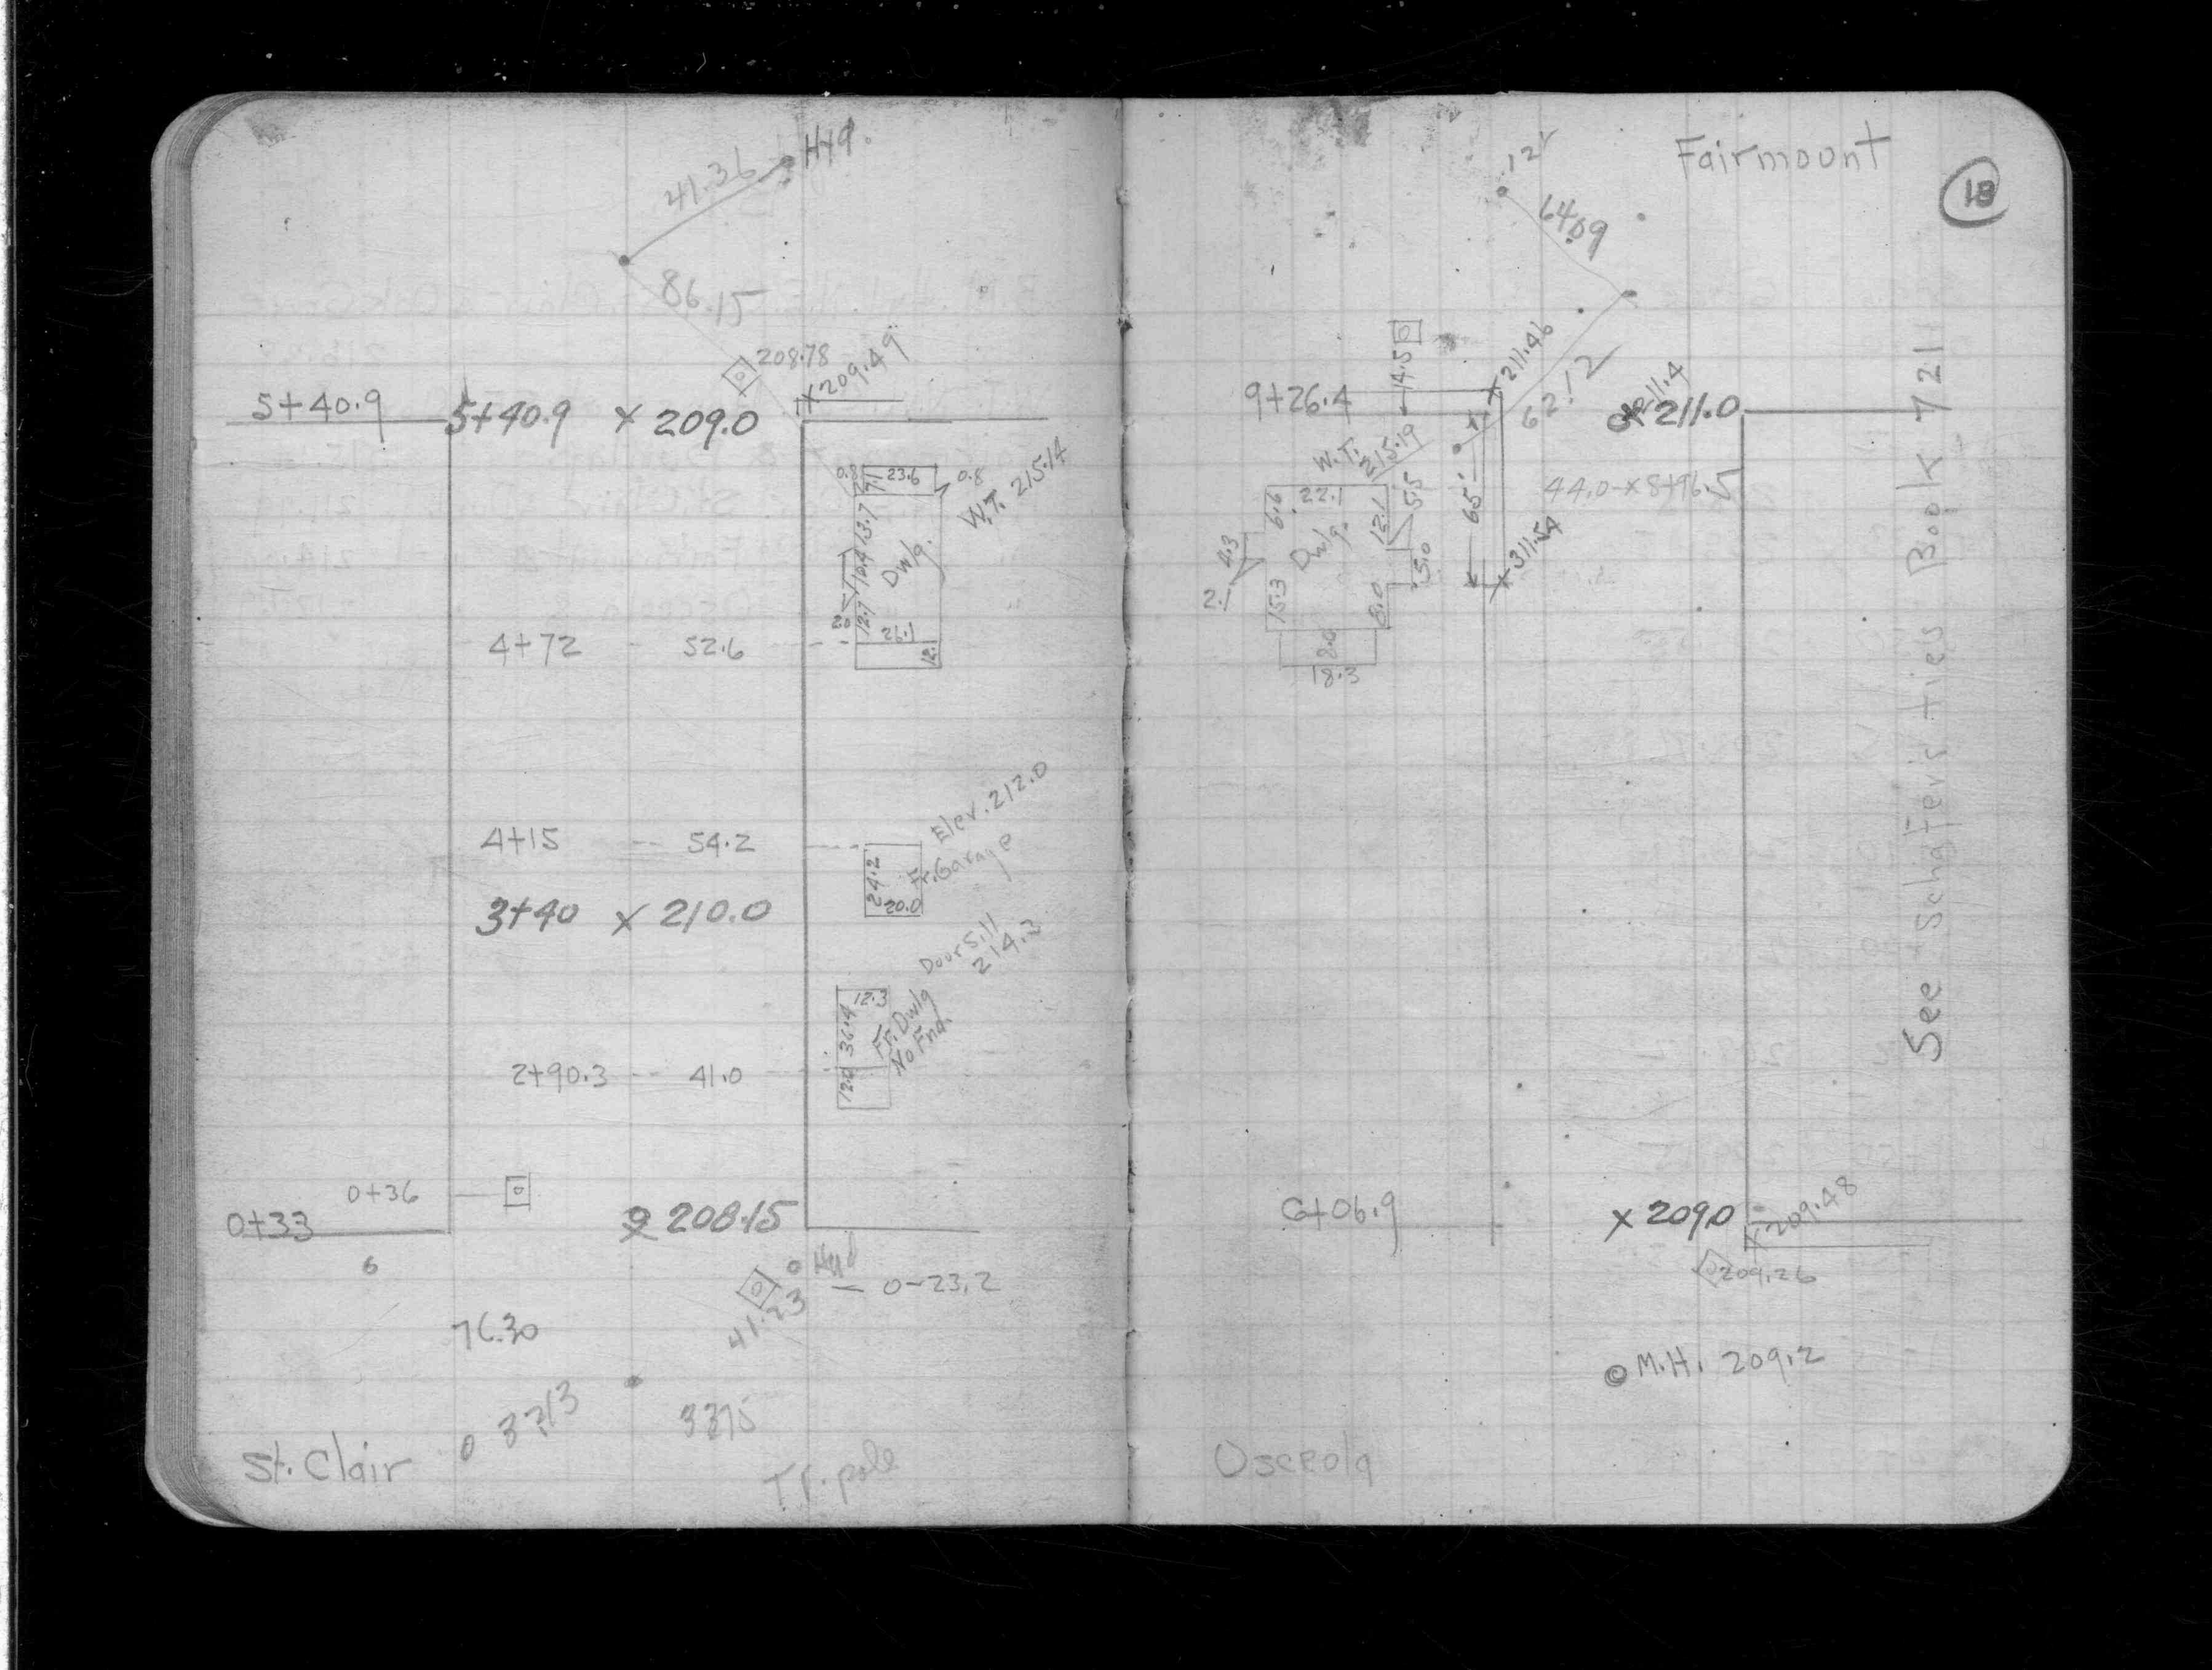 41.36
Hyd.
86.15
208.78
X 209.49
5+40.9
5+40.9 x 209.0
0.8
7.1
23.6
0.8
W.T. 215.14
13.7
10.4
Dwlg.
2.0
12.7
26.1
12.1
4+72 - 52.6
Elev. 212.0
4+15 -- 54.2
24.2
20.0
Fr. Garage
3+40 x 210.0
Door Sill
214.3
12.3
36.4
Fr. Dwlg
No Fnd.
2+90.3 -- 41.0
12.0
0+36
0+33
208.15
6
Hyd
0-23.2
41.23
76.30
3375
St. Clair
Tr. pole
Fairmount
18
64.09
14.5
X 211.46
62.12
9+26.4
x 211.0
W.T. 215.19
6.6
22.1
12.1
5.5
65'
44.0-x 8+96.5
4.3
2.1
Dwlg.
5.0
15.3
8.0
8.0
18.3
See Schaffer's ties Book 7211
6+06.9
x 209.0
X 209.48
209.26
M.H. 209.2
Osceola